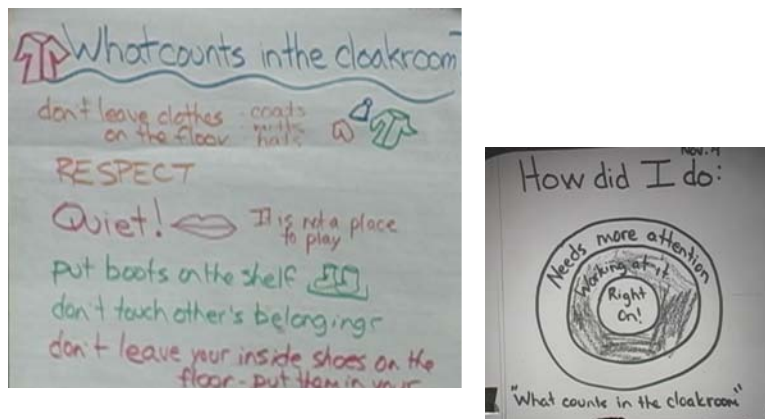 What counts in the cloakroom
don't leave clothes - coats
on the floor mitts hats
RESPECT
Quiet! It is not a place
to play
put boots on the shelf
don't touch other's belongings
don't leave your inside shoes on the
floor - put them in your
Nov. 4
How did I do:
Needs more attention
Working at it
Right
On!
"What counts in the cloakroom"